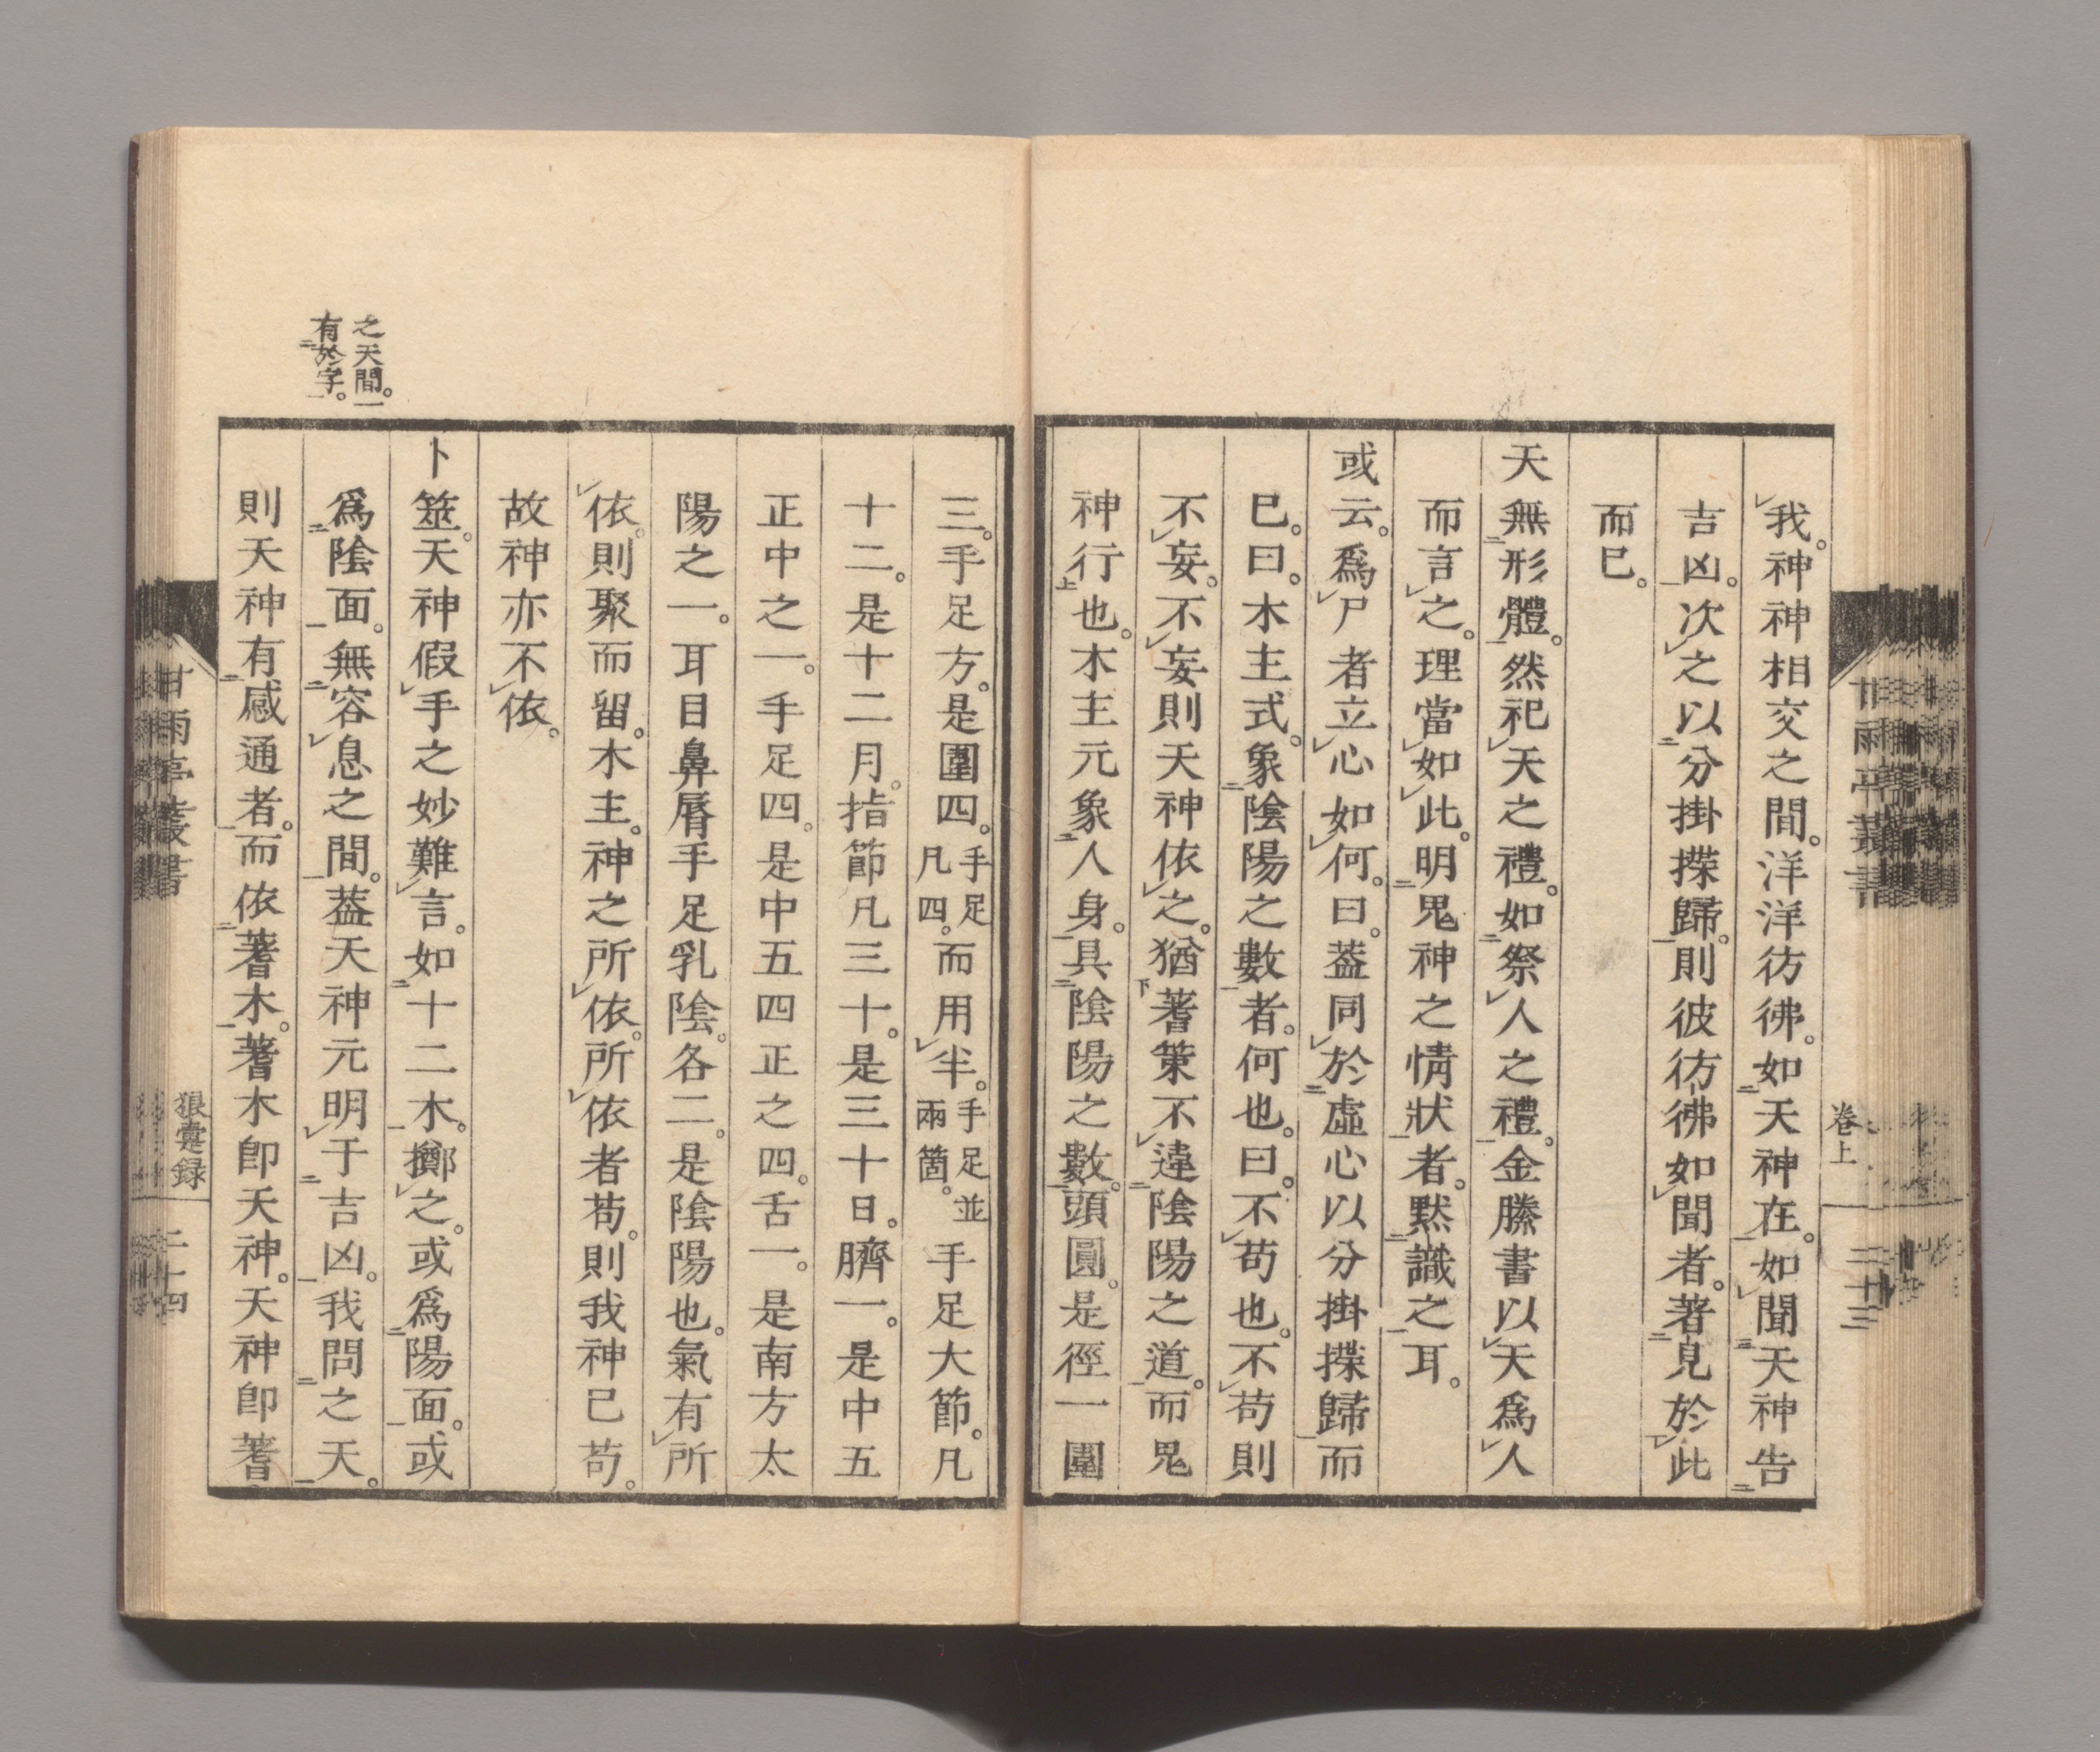 我。神神相交之間。洋洋彷彿。如天神在。如聞天神告
吉凶。次之以分掛揲歸。則彼彷彿如聞者。著見於此
而已。
天無形體。然祀天之禮。如祭人之禮。金縢書以天爲人
而言之。理當如此。明鬼神之情狀者。默識之耳。
或云。爲尸者立心如何。曰。葢同於虛心以分掛揲歸而
已。曰。木主式。象陰陽之數者。何也。曰。不苟也。不苟則
不妄。不妄則天神依之。猶蓍策不違陰陽之道。而鬼
神行也。木主元象人身。具陰陽之數。頭圓。是徑一圍
卷上
二十三
三。手足方。是圍四。手足凡四。而用半。手足並兩箇。手足大節。凡
十二。是十二月。指節凡三十。是三十日。臍一。是中五
正中之一。手足四。是中五四正之四。舌一。是南方太
陽之一。耳目鼻脣手足乳陰。各二。是陰陽也。氣有所
依。則聚而留。木主。神之所依。所依者苟。則我神已苟。
故神亦不依。
卜筮。天神假手之妙難言。如十二木。擲之。或爲陽面。或
爲陰面。無容息之間。葢天神元明于吉凶。我問之天。
則天神有感通者。而依蓍木。蓍木卽天神。天神卽蓍
之天間。一
有於字。
甘雨亭叢書
狼疐録
二十四